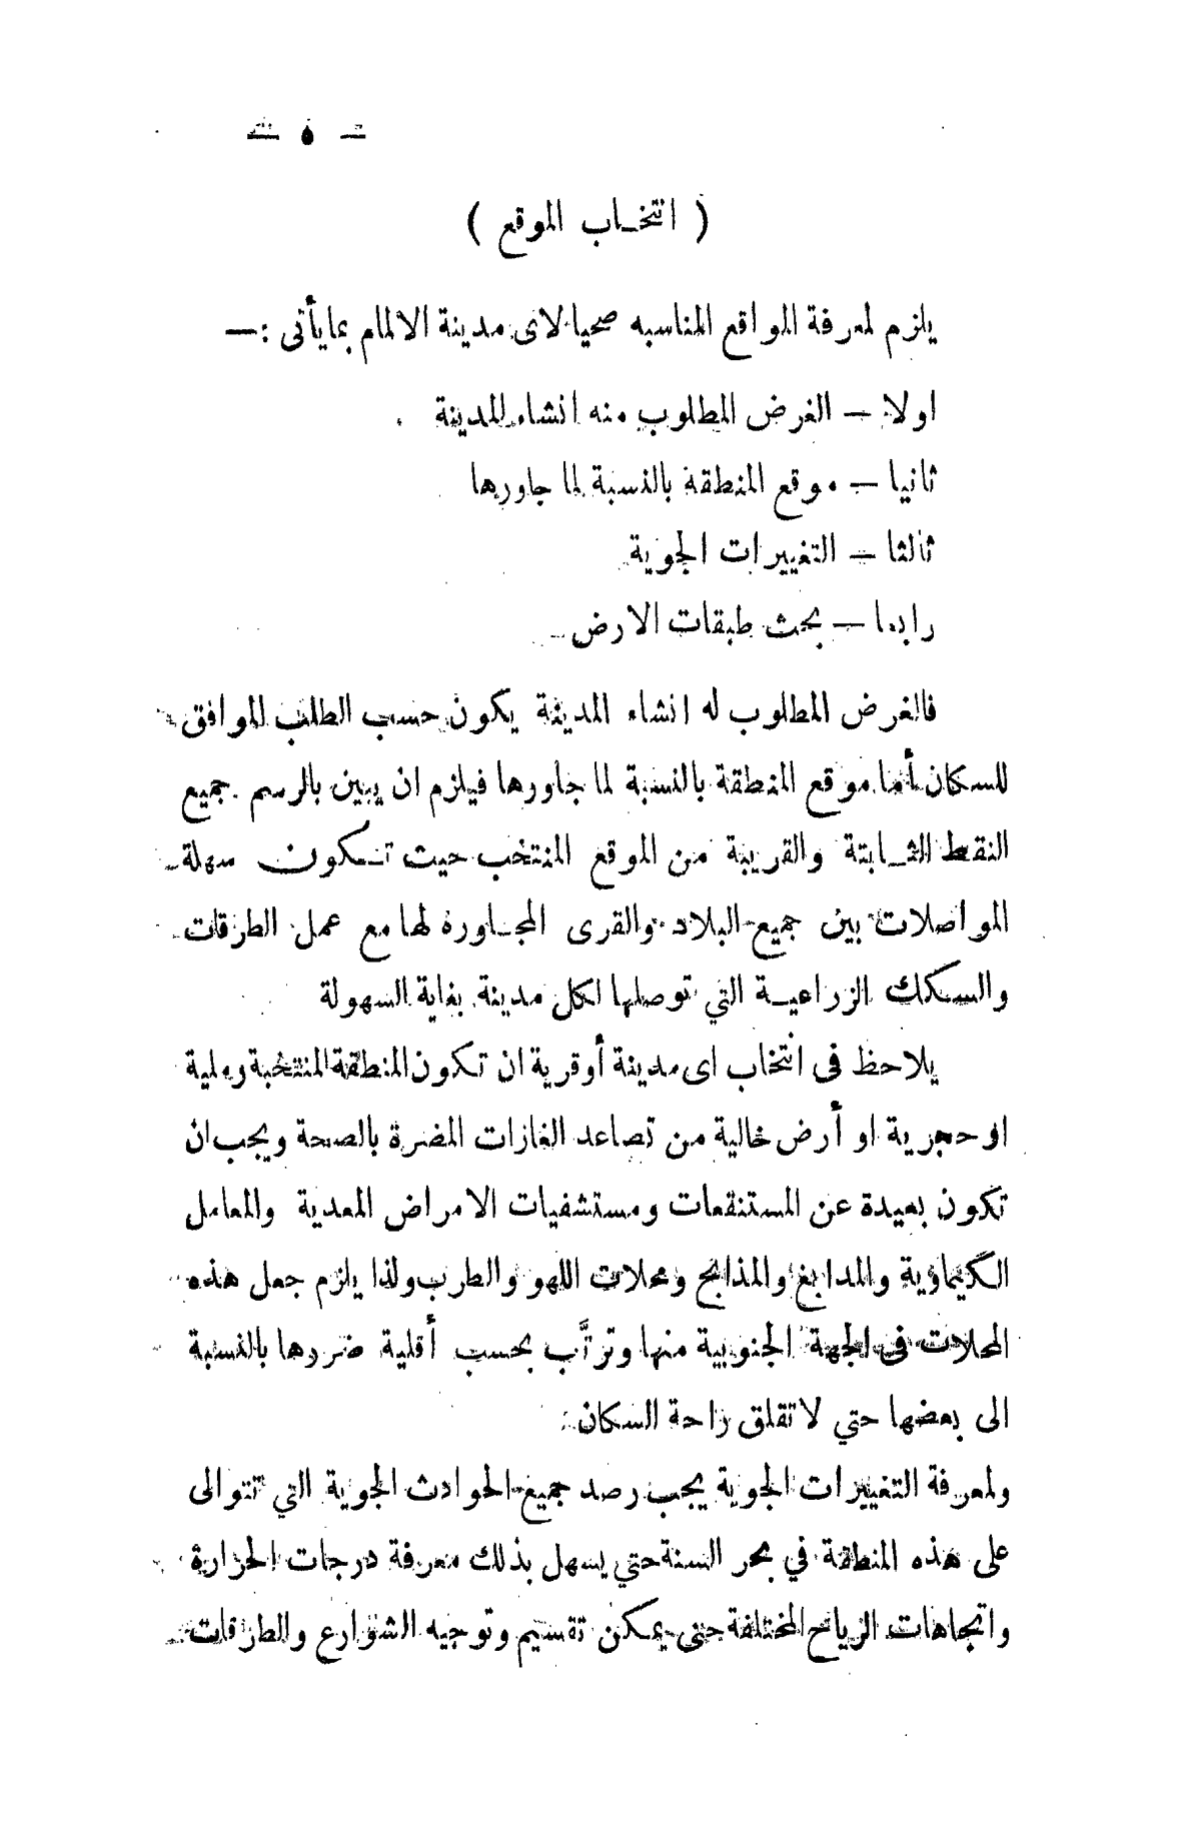 — ٥ —
( انتخاب الموقع )
يلزم لمعرفة المواقع المناسبه صحيا لاى مدينة الالمام بمايأتى :—
اولا — الغرض المطلوب منه انشاء المدينة .
ثانيا — موقع المنطقة بالنسبة لما جاورها
ثالثا — التغييرات الجوية
رابعا — بحث طبقات الارض
فالغرض المطلوب له انشاء المدينة يكون حسب الطلب الموافق
للسكان أما موقع المنطقة بالنسبة لما جاورها فيلزم ان يبين بالرسم جميع
النقط الثابتة والقريبة من الموقع المنتخب حيث تكون سهلة
المواصلات بين جميع البلاد والقرى المجاورة لها مع عمل الطرقات
والسكك الزراعية التي توصلها لكل مدينة بغاية السهولة
يلاحظ فى انتخاب اى مدينة أوقرية ان تكون المنطقة المنتخبة رملية
او حجرية او أرض خالية من تصاعد الغازات المضرة بالصحة ويجب ان
تكون بعيدة عن المستنقعات ومستشفيات الامراض المعدية والمعامل
الكيماوية والمدابغ والمذابح ومحلات اللهو والطرب ولذا يلزم جعل هذه
المحلات فى الجهة الجنوبية منها وترتَّب بحسب أقلية ضررها بالنسبة
الى بعضها حتي لا تقلق راحة السكان .
ولمعرفة التغييرات الجوية يجب رصد جميع الحوادث الجوية التي تتوالى
على هذه المنطقة في بحر السنة حتي يسهل بذلك معرفة درجات الحرارة
واتجاهات الرياح المختلفة حتى يمكن تقسيم وتوجيه الشوارع والطرقات